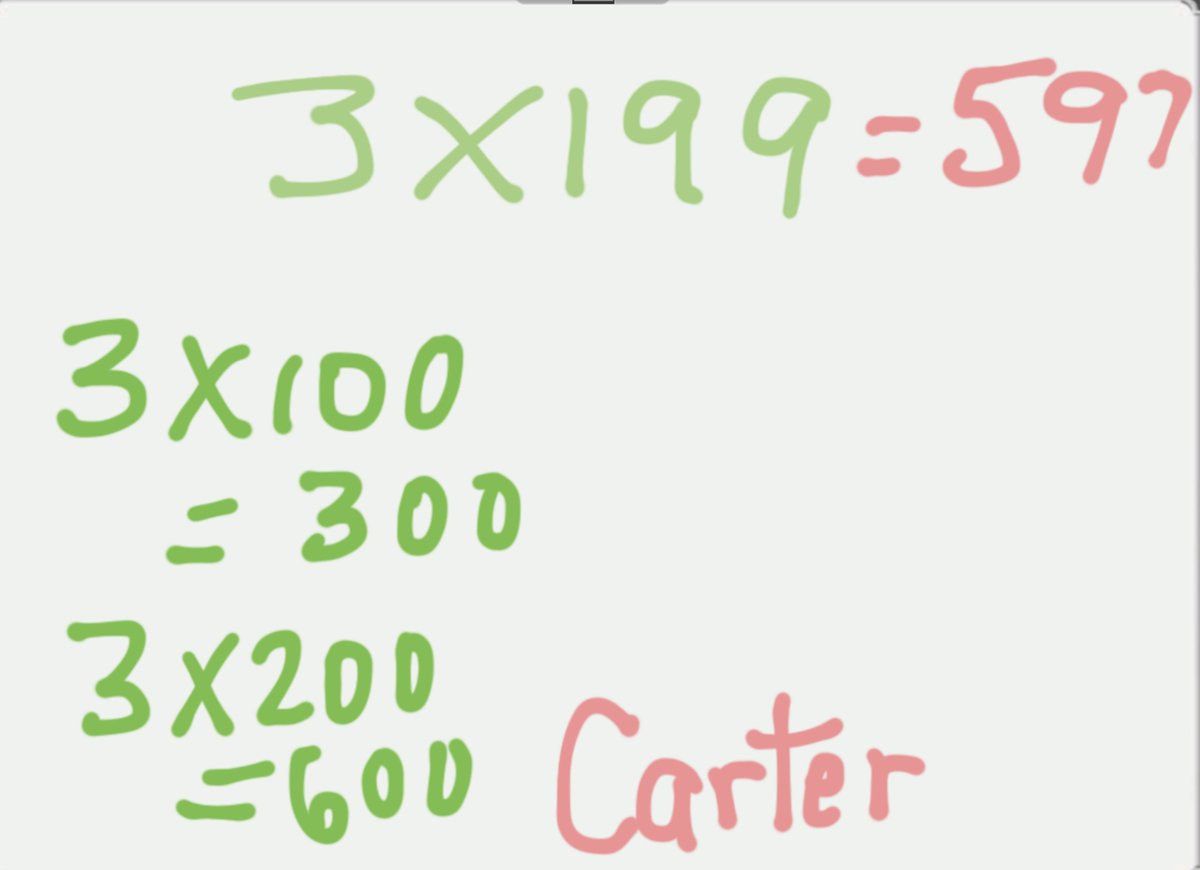 3×199=597
3×100
=300
3×200
=600
Carter